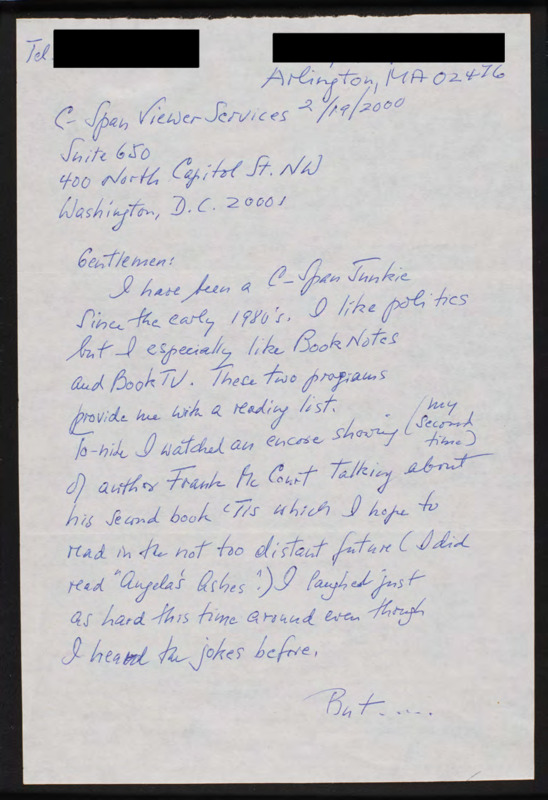 Tel.
Arlington, MA 02476
C-Span Viewer Services 2/19/2000
Suite 650
400 North Capitol St. NW
Washington, D.C. 20001
Gentlemen:
I have been a C-Span Junkie
Since the early 1980's. I like politics
but I especially like BookNotes
and BookTV. These two programs
provide me with a reading list.
To-nite I watched an encore showing (my second time)
of author Frank Mc Court talking about
his second book 'Tis which I hope to
read in the not too distant future (I did
read "Angela's Ashes".) I laughed just
as hard this time around even though
I heard the jokes before.
But.....